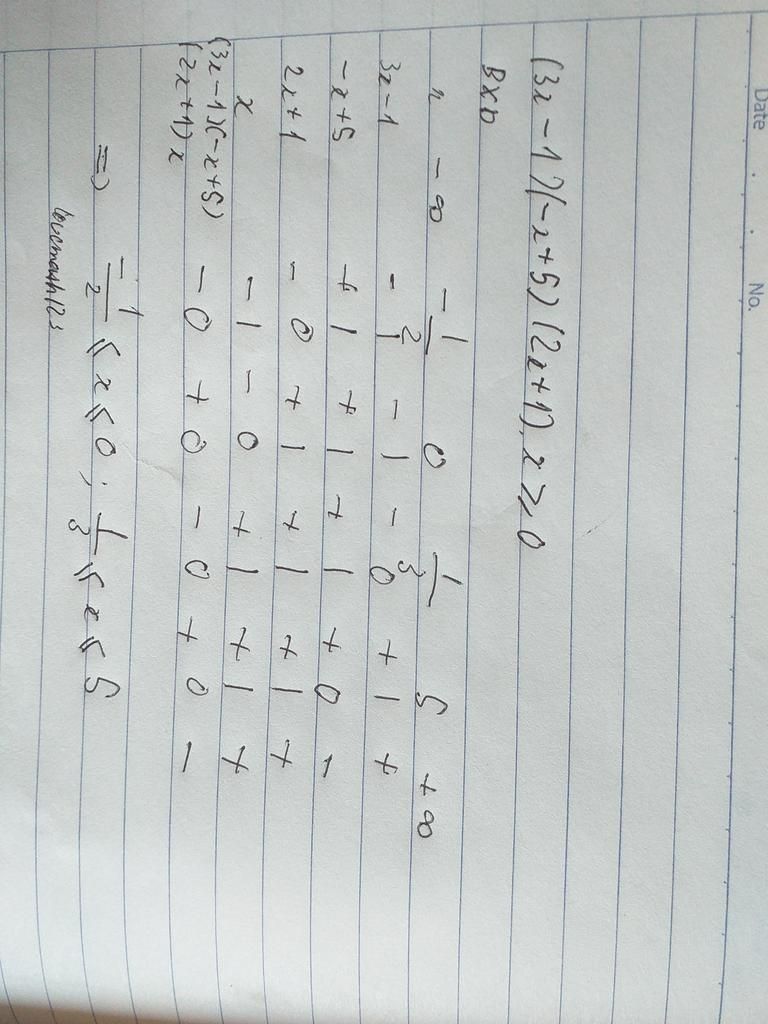 Date No.
(3x-1)(-x+5)(2x+1).x ≥ 0
BXD
x -∞ -1/2 0 1/3 5 +∞
3x-1 - | - | - 0 + | +
-x+5 + | + | + | + 0 -
2x+1 - 0 + | + | + | +
x - | - 0 + | + | +
(3x-1)(-x+5)
(2x+1)x - 0 + 0 - 0 + 0 -
=> -1/2 ≤ x ≤ 0 ; 1/3 ≤ x ≤ 5